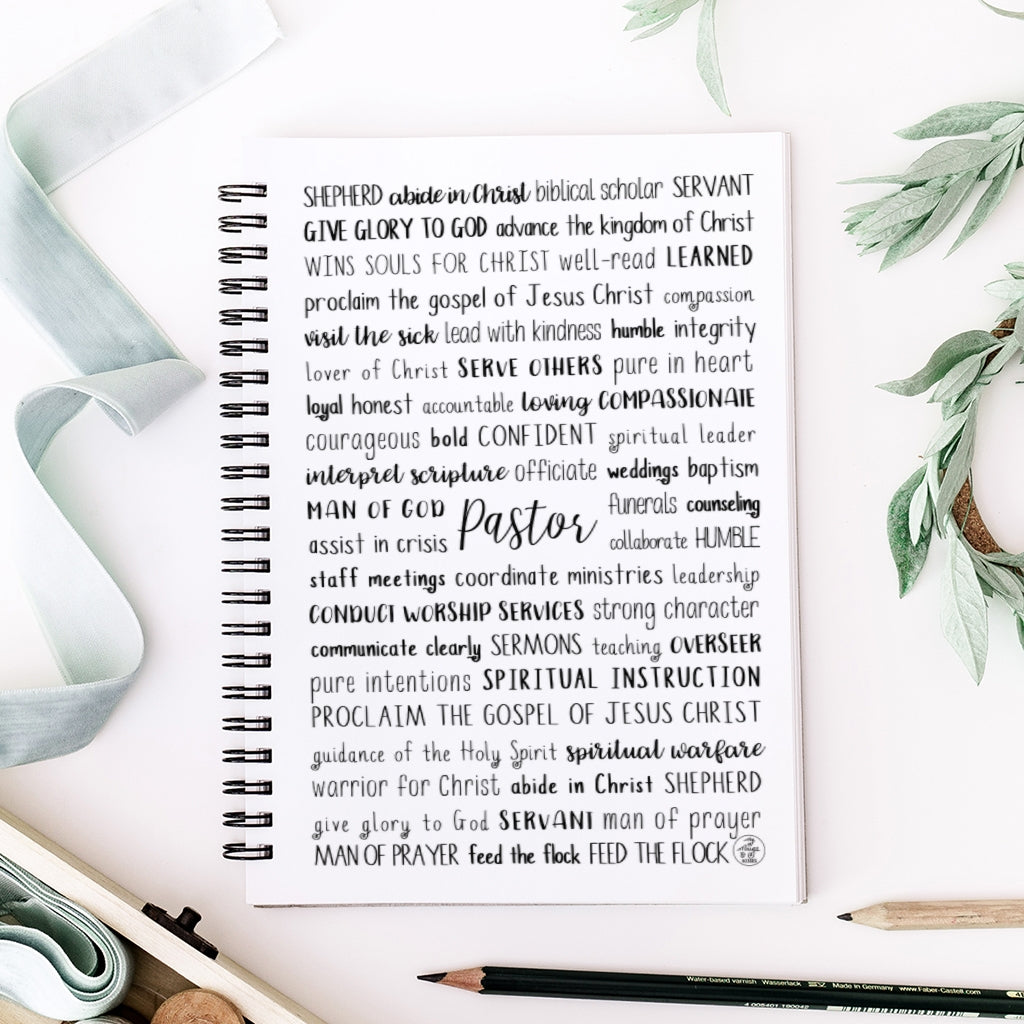 SHEPHERD abide in Christ biblical scholar SERVANT
GIVE GLORY TO GOD advance the kingdom of Christ
WINS SOULS FOR CHRIST well-read LEARNED
proclaim the gospel of Jesus Christ compassion
visit the sick lead with kindness humble integrity
lover of Christ SERVE OTHERS pure in heart
loyal honest accountable loving COMPASSIONATE
courageous bold CONFIDENT spiritual leader
interpret scripture officiate weddings baptism
MAN OF GOD Pastor funerals counseling
assist in crisis collaborate HUMBLE
staff meetings coordinate ministries leadership
CONDUCT WORSHIP SERVICES strong character
communicate clearly SERMONS teaching OVERSEER
pure intentions SPIRITUAL INSTRUCTION
PROCLAIM THE GOSPEL OF JESUS CHRIST
guidance of the Holy Spirit spiritual warfare
warrior for Christ abide in Christ SHEPHERD
give glory to God SERVANT man of prayer
MAN OF PRAYER feed the flock FEED THE FLOCK
Water-based varnish Wasserlack SV Made in Germany www.Faber-Castell.com
4 005401 190042